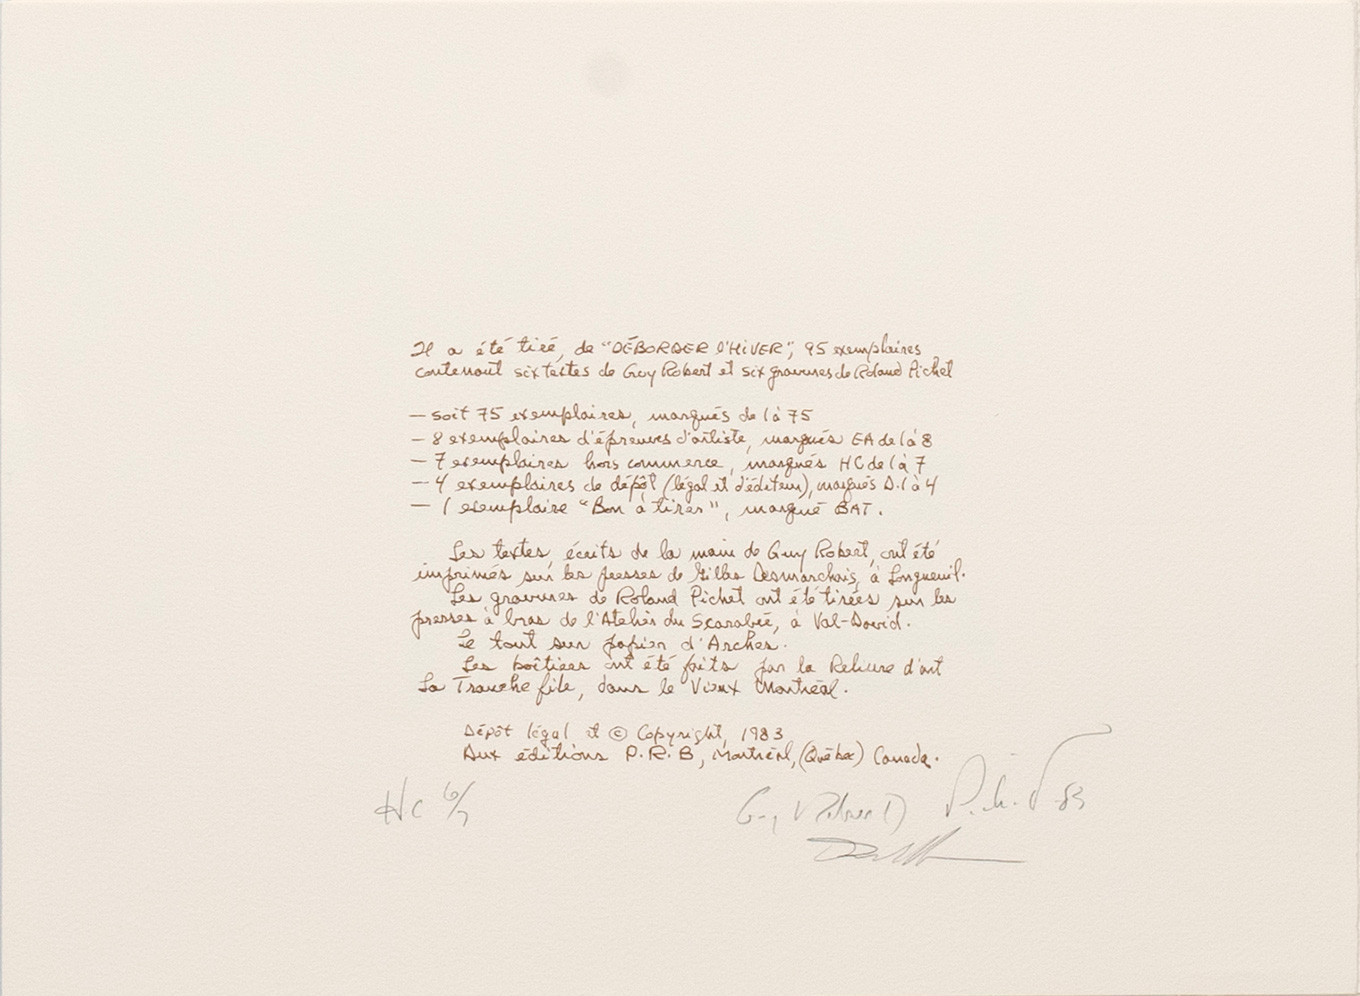 Il a été tiré, de "DÉBORDER l'HIVER", 95 exemplaires
contenant six textes de Guy Robert et six gravures de Roland Pichet
— soit 75 exemplaires, marqués de 1 à 75
— 8 exemplaires d'épreuves d'artiste, marqués EA de 1 à 8
— 7 exemplaires hors commerce, marqués HC de 1 à 7
— 4 exemplaires de dépôt (légal et d'éditeur), marqués D.1 à 4
— 1 exemplaire "Bon à tirer", marqué BAT.
Les textes, écrits de la main de Guy Robert, ont été
imprimés sur les presses de Gilles Desmarchais, à Longueuil.
Les gravures de Roland Pichet ont été tirées sur les
presses à bras de l'Atelier du Scarabée, à Val-David.
Le tout sur papier d'Arches.
Les boîtiers ont été faits par la Reliure d'art
La Tranchefile, dans le Vieux Montréal.
Dépôt légal et © Copyright, 1983
Aux éditions P.R.B, Montréal, (Québec) Canada.
HC 6/7 Guy Robert Pichet-83